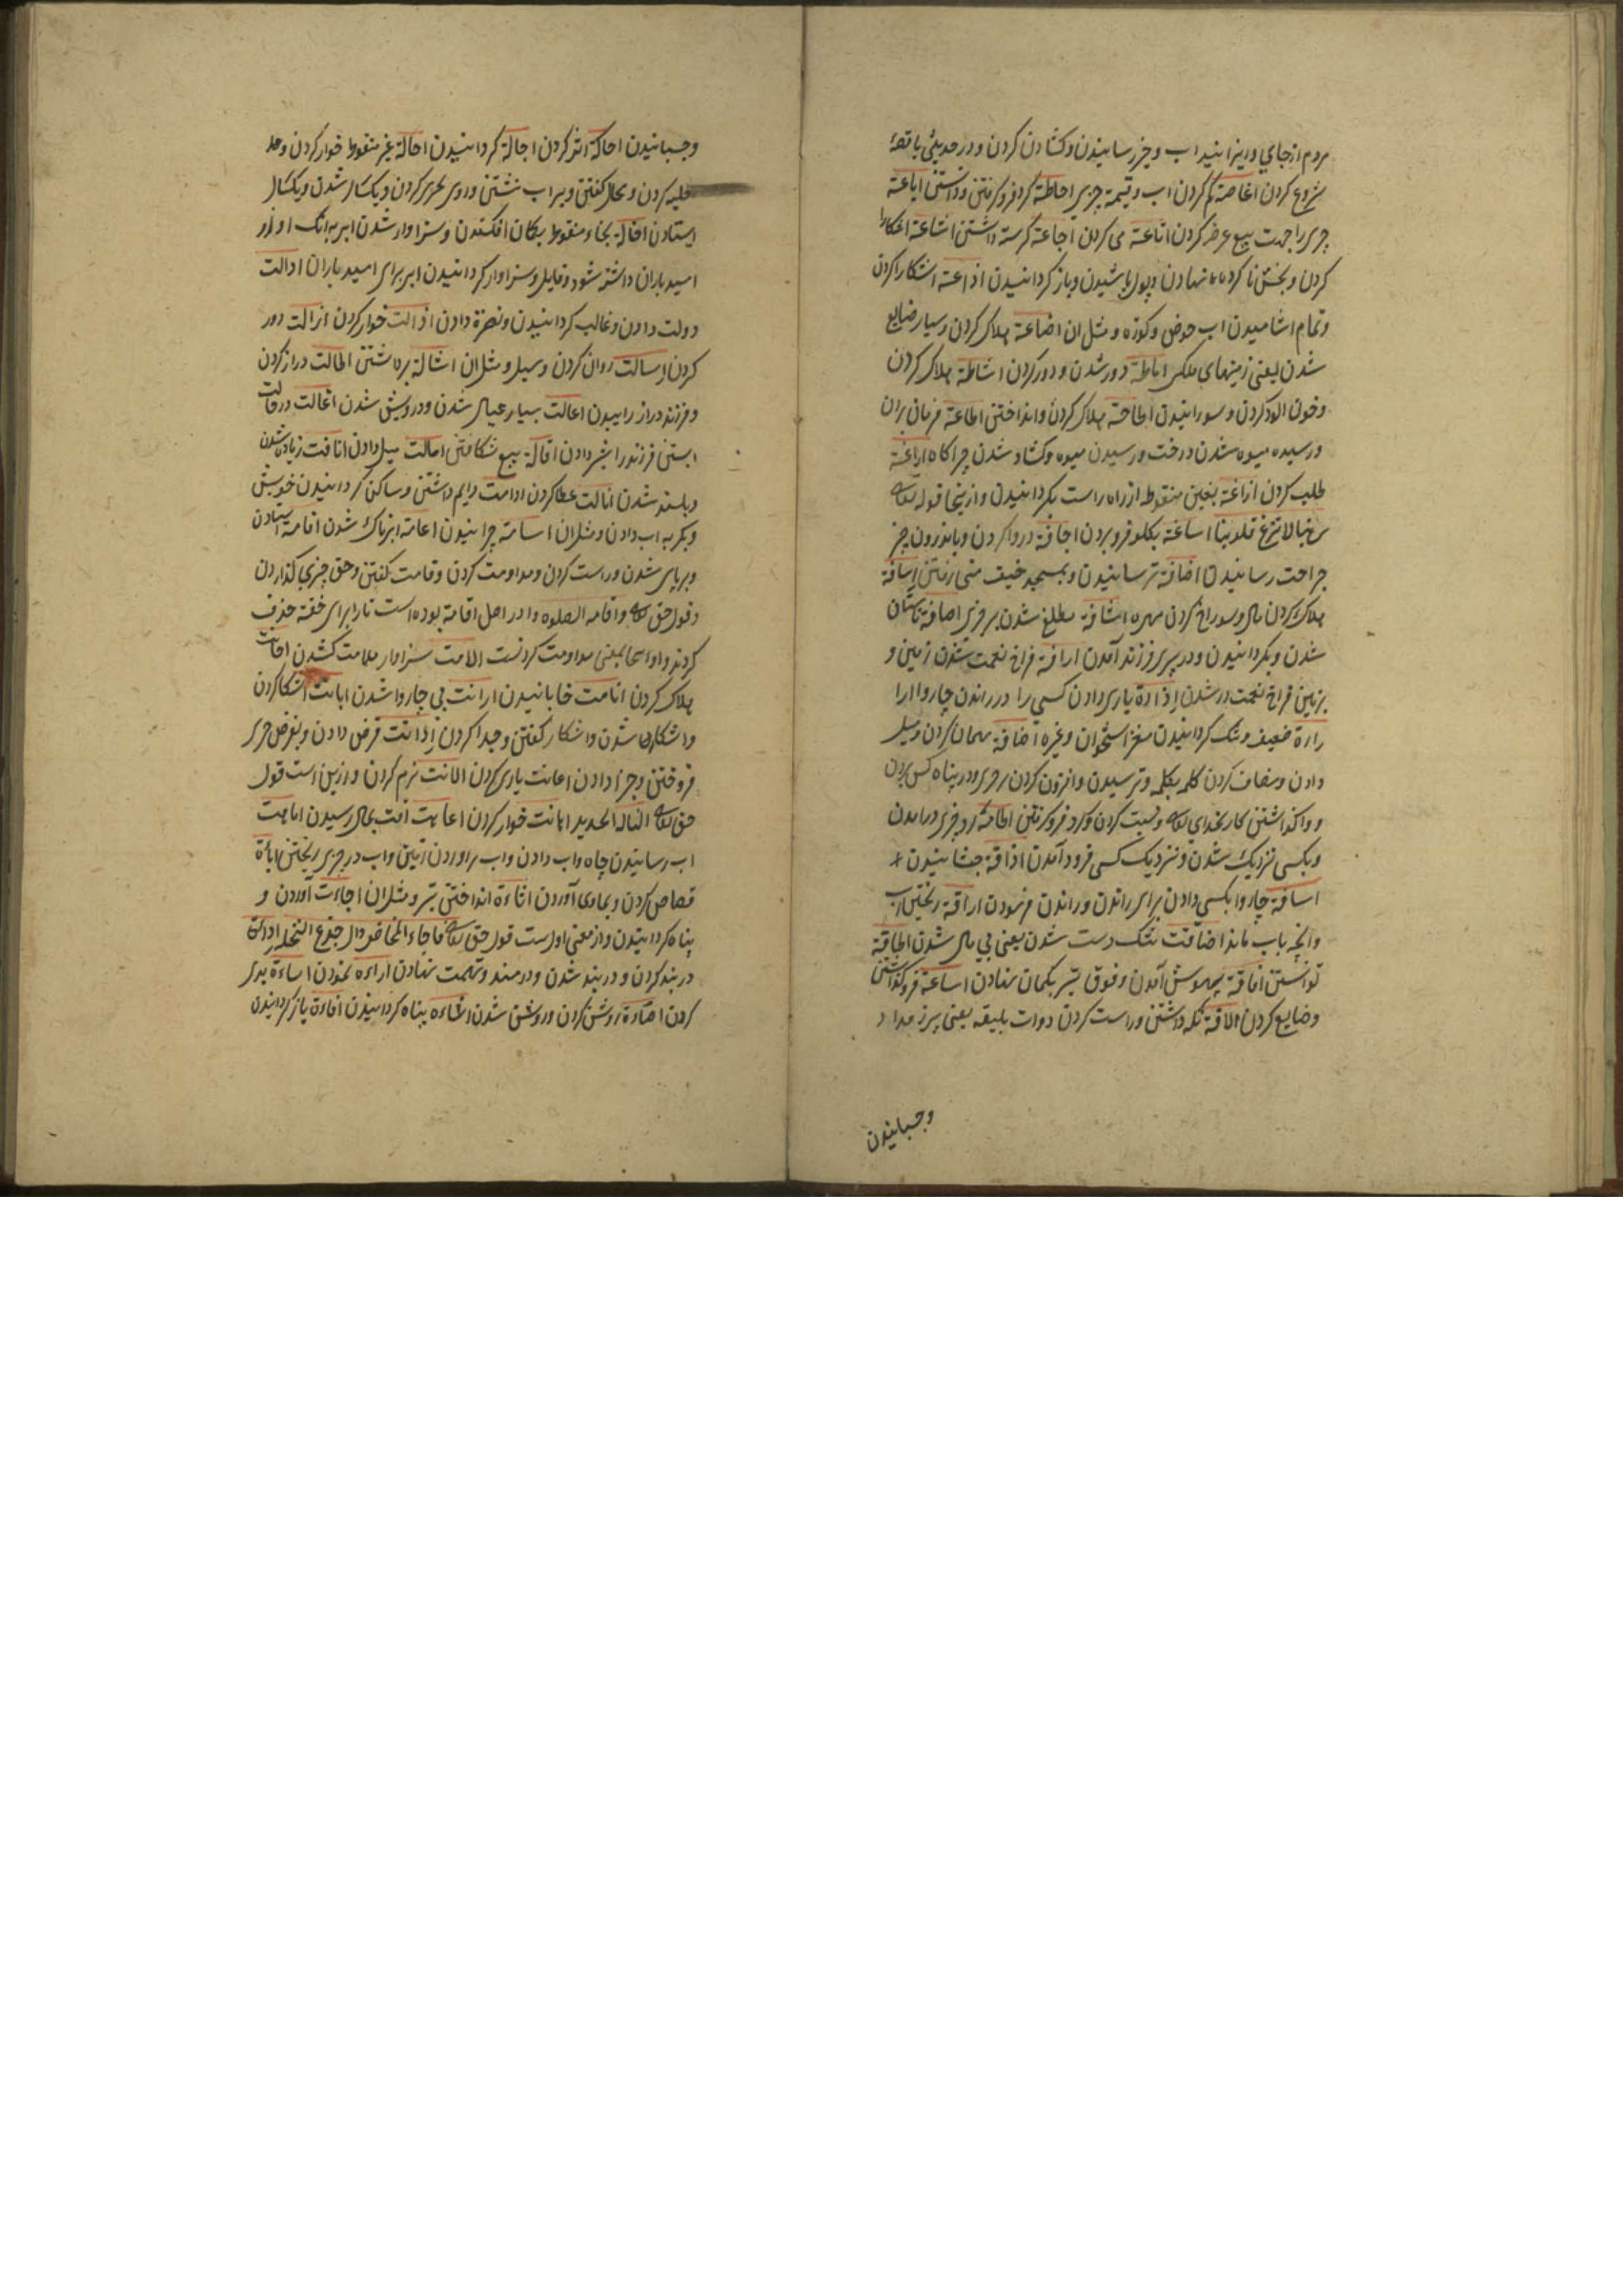 مردم از جای و ریزانیدن اب و چیز رسانیدن و کشادن کردن و در حدیثی یا قصهٔ
شروع کردن اغاضة کم کردن اب و قیمة چیزی احاطة کرد فرو کرفتن و دانستن اباعة
چیزی را جهت بیع عرض کردن اتاعة می کردن اجاعة کرسنه داشتن اشاعة اشکارا
کردن و بخش ناکرده نهادن و بول پاشیدن و باز کردانیدن اذاعة اشکارا کردن
و تمام اشامیدن اب حوض و کوزه و مثل ان اضاعة هلاک کردن و بسیار ضایع
شدن یعنی زمینهای ملکی اماطة دور شدن و دور کردن اشاطة هلاک کردن
و خون الود کردن و سوزانیدن اطاحة هلاک کردن و انداختن اطاعة فرمان بردن
و رسیده میوه شدن درخت و رسیدن میوه و کشاد شدن چراکاه اراغة
طلب کردن ازاغة بغین منقوط از راه راست بکردانیدن و ازینجا قوله تعالی
ربنا لا تزغ قلوبنا اساغة بکلو فرو بردن اجافة در وا کردن و باندرون چیز
جراحت رسانیدن اخافة ترسانیدن و بمسجد خیف منی رفتن اسافة
هلاک کردن مال و سوراخ کردن مهره اشافة مطلع شدن بر چیزی اصافة تابستان
شدن و بکردانیدن و در پیری فرزند آمدن ارافة فراخ نعمت شدن زمین و
بزمین فراخ نعمت در شدن اذادة یاری دادن کسی را در راندن چاروا ارا
رارة ضعیف و تنک کردانیدن مغز استخوان و غیره اضافة مهمان کردن و میل
دادن و مضاف کردن کلمه بکلمه و ترسیدن و افزون کردن بر چیزی و در پناه کس بردن
و واکذاشتن کار بخدای تعالی و نسبت کردن و کرد فرو کرفتن اطافة کرد چیزی درامدن
و بکسی نزدیک شدن و نزدیک کسی فرود آمدن اذاقة چشانیدن
اساقة چاروا بکسی دادن برای راندن و راندن فرمودن اراقة ریختن اب
وانچه باب ماند اضاقت تنک دست شدن یعنی بی مال شدن اطاقة
توانستن افاقة بهوش آمدن و فوق تیر بکمان نهادن اساعة فرو کذاشتن
و ضایع کردن الاقة نکه داشتن و راست کردن دوات بلیقه یعنی پرز مداد
وچسبانیدن
وچسبانیدن احاکة اثر کردن اجالة کردانیدن احالة غیر منقوط خوار کردن و حد
حلیه کردن و محال کفتن و بر اب نشتن و روی بحری کردن و یکسال شدن و یکسال
ایستادن اخالة بخاء منقوط بکمان افکندن و سزاوار شدن ابر بدانک او از و
امید باران داشته شود و قابل و سزاوار کردانیدن ابر برای امید باران ادالت
دولت دادن و غالب کردانیدن و نصرة دادن اذالت خوار کردن ازالت دور
کردن اسالت روان کردن و سیل و مثل ان اشالة برداشتن اطالت دراز کردن
و فرزند دراز زاییدن اعالت بسیار عیال شدن و درویش شدن اغالت در حالت
ابستنی فرزند را شیر دادن اقالة بیع شکافتن امالت میل دادن انافت زیاده شدن
و بلند شدن انالت عطا کردن ادامت دایم داشتن و ساکن کردانیدن خویش
و بکر به اب دادن و مثل ان اسامة چرانیدن اغامة ابرناک شدن اقامة ایستادن
و بر پای شدن و راست کردن و مداومت کردن و قامت کفتن و حق چیزی کذاردن
و قول حق تعالی و اقامه الصلوه و ادر اصل اقامة بوده است تا را برای خفة حذف
کردند و او اینجا بمعنی مداومت کردنست الامت سزاوار ملامت کشدن
هلاک کردن انامت خابانیدن ارانت بی چاروا شدن ابانت اشکارا کردن
و اشکارا شدن و اشکار کفتن و جدا کردن ادانت قرض دادن و بقرض چیزی
فروختن و جزا دادن اعانت یاری کردن الانت نرم کردن و ازین است قول
حق تعالی النا له الحدید اهانت خوار کردن اعاهت افت بمال رسیدن اماهت
اب رسانیدن چاه و اب دادن و اب براوردن زمین و اب در چیزی ریختن اباءة
قصاص کردن و بماوی آوردن اثاءة انداختن تیر و مثل ان اجاءت آوردن و
پناه کردانیدن و از معنی اولست قول حق تعالی فاجاءها المخاض الی جذع النخلة اداءة
در بند کردن و در بند شدن و درمند و تهمت نهادن اراءه نمودن اساءة بدی
کردن اضاءة روشن کردن و روشن شدن اشاءه پناه کردانیدن افاءة باز کردانیدن